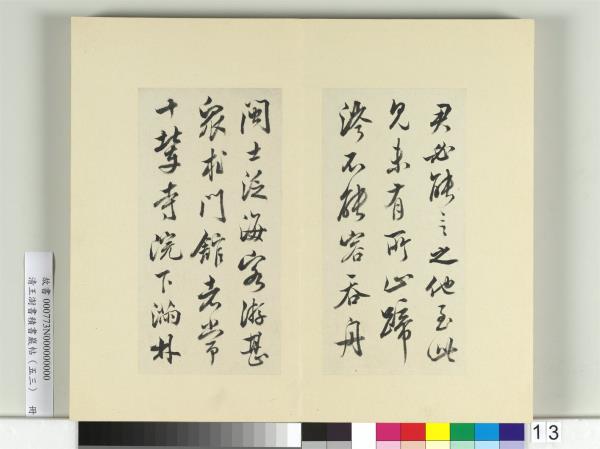 君必能言之他至此
兄未有所止蹄
涔不能容吞舟
閩士泛海客游甚
眾於門館者常
十輩寺院下滿林
故書 000773N000000000
清王澍書積書巖帖（五三） 冊
13